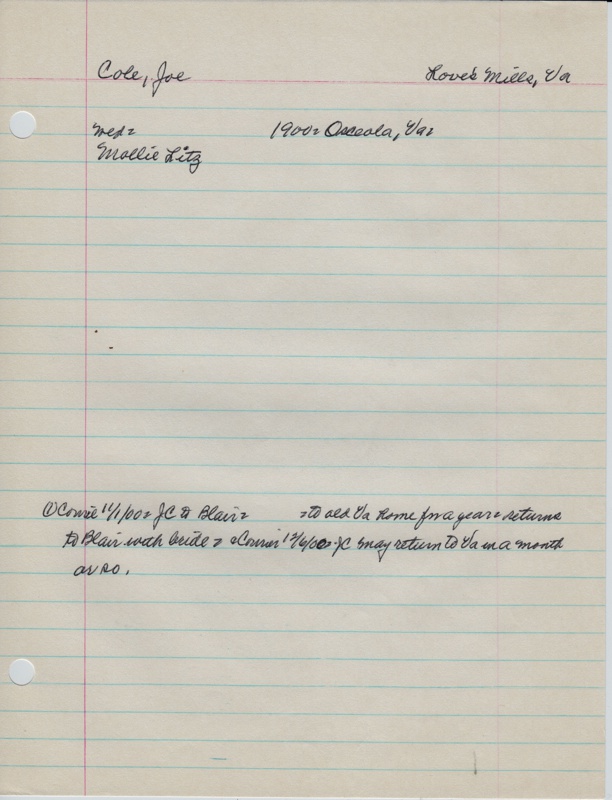 Cole, Joe Love's Mills, Va
wed = 1900 = Osceola, Va =
Mollie Litz
① Courie 11/1/00 = JC to Blair = = to old Va home for a year = returns
to Blair with bride = = Courier 12/6/00 = JC may return to Va in a month
or so.